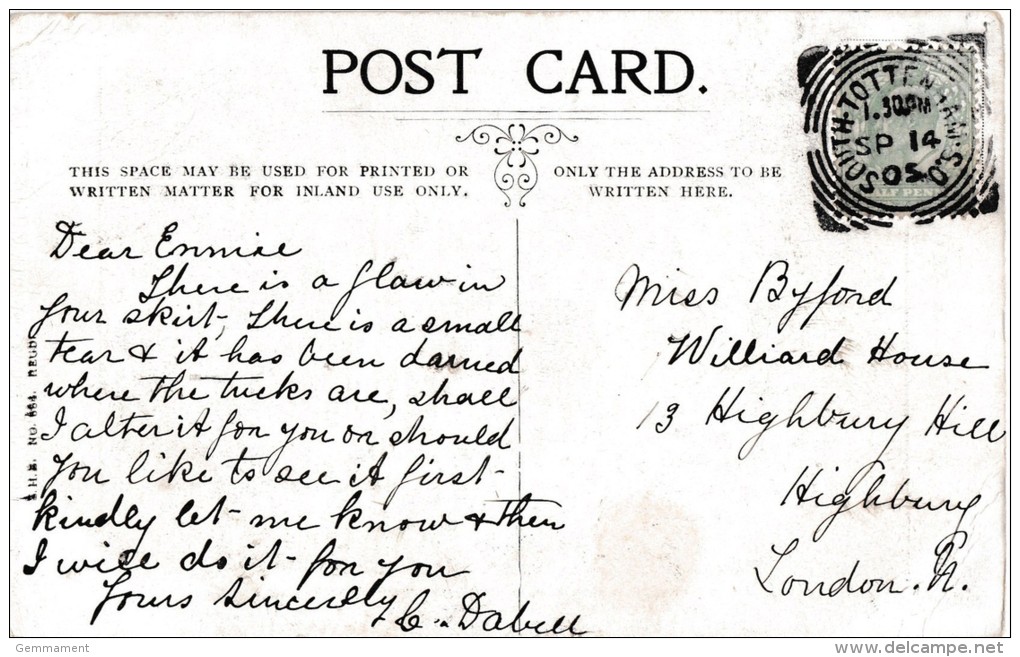 POST CARD.
THIS SPACE MAY BE USED FOR PRINTED OR
WRITTEN MATTER FOR INLAND USE ONLY.
ONLY THE ADDRESS TO BE
WRITTEN HERE.
SOUTH·TOTTENHAM·S.O.
1.30PM
SP 14
05
HALF PENNY
Dear Ennise
There is a flaw in
your skirt, there is a small
tear & it has been darned
where the tucks are, shall
I alter it for you or should
you like to see it first
kindly let me know & then
I will do it for you
Yours Sincerely
C. Dabell
Miss Byford
Williard House
13 Highbury Hill
Highbury
London. N.
NO. 664.
Gemmament
delcampe.net